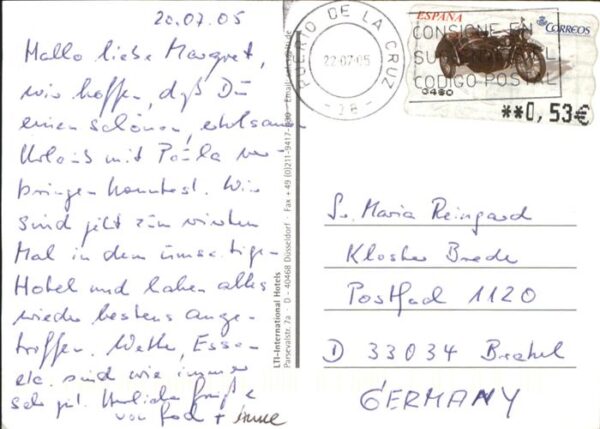 20.07.05
Hallo liebe Margret,
wir hoffen, daß Du
einen schönen, erholsamen
Urlaub mit Paula ver-
bringen konntest. Wir
sind jetzt zum vierten
Mal in dem umseitigen
Hotel und haben alles
wieder bestens ange-
troffen. Wetter, Essen
etc. sind wie immer
sehr gut. Herzliche Grüße
von + Anne
LTI-International Hotels
Parsevalstr. 7a · D - 40468 Düsseldorf · Fax + 49 (0)211-9417-
PUERTO DE LA CRUZ
22-07-05
- 38 -
ESPAÑA
CORREOS
CONSIGNE EN
SU
CODIGO POSTAL
**0,53€
Sr. Maria Reingard
Kloster Brede
Postfach 1120
D 33034 Brakel
GERMANY